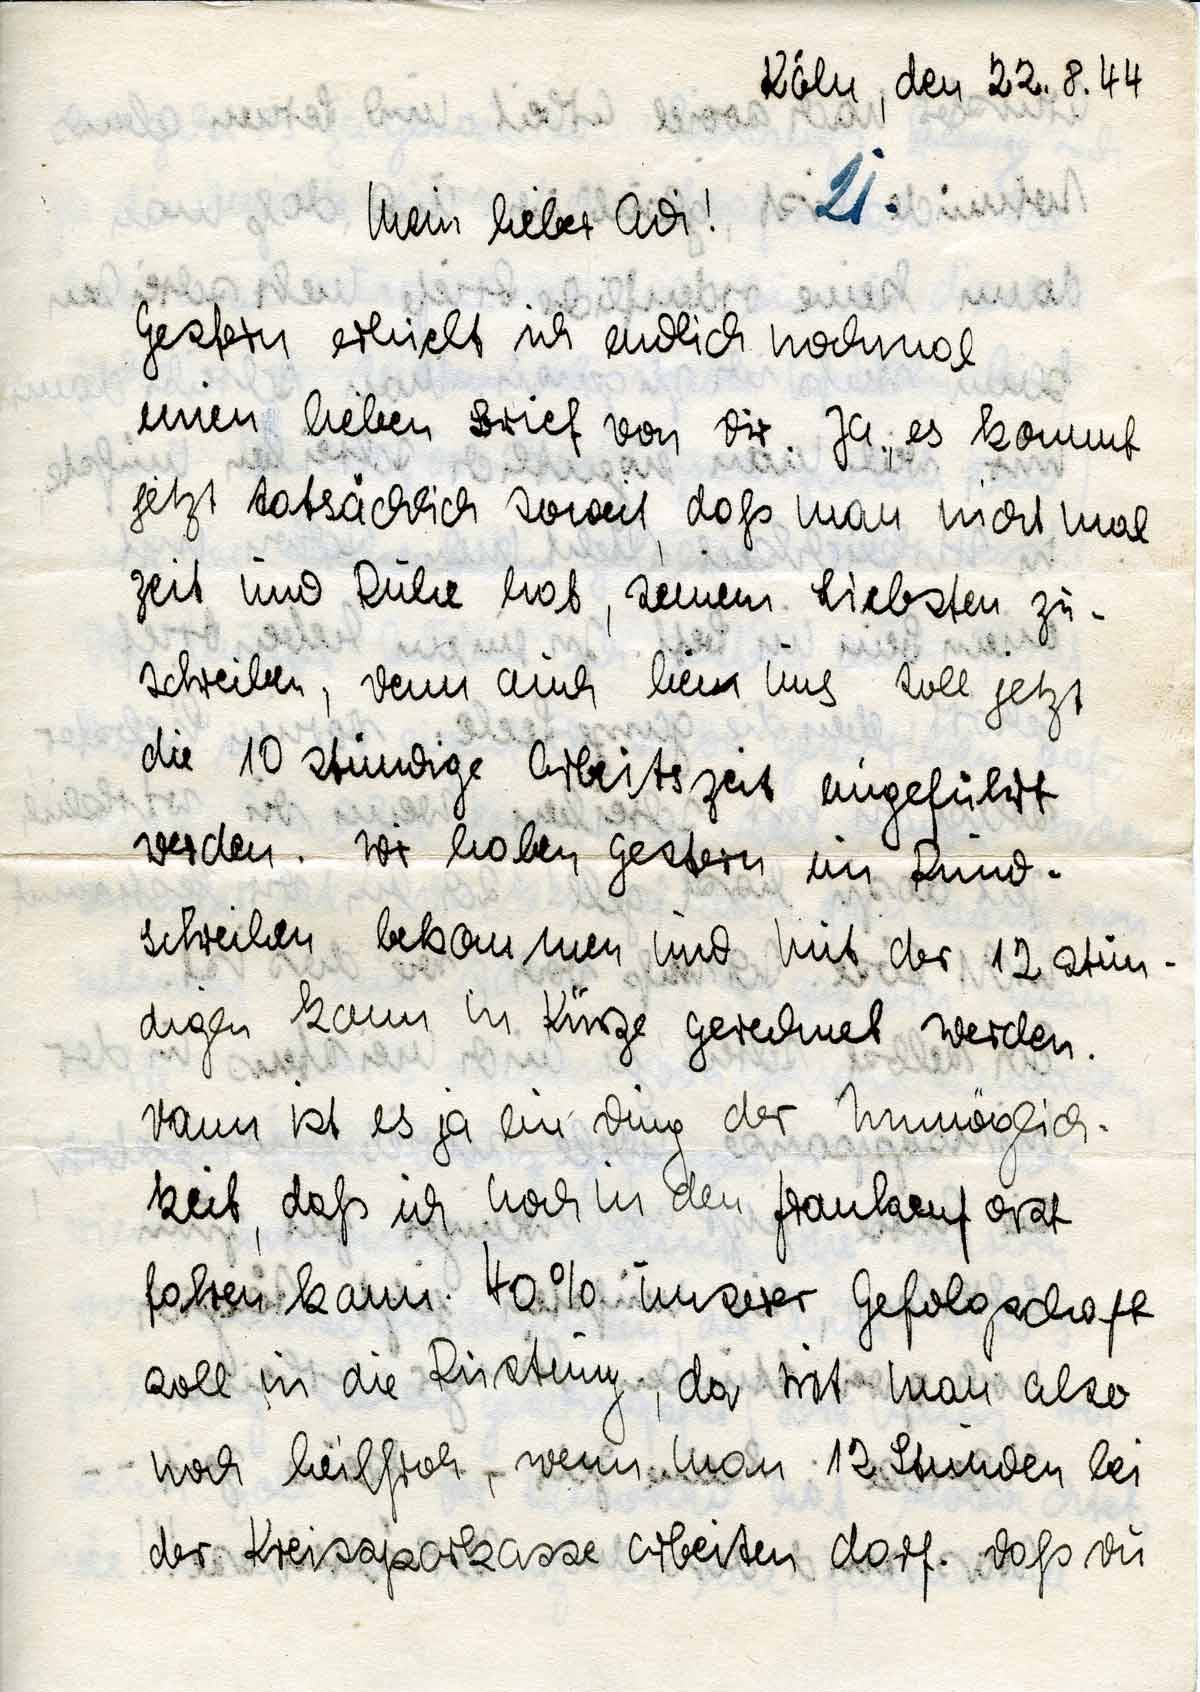 Köln, den 22.8.44
21.
Mein lieber Adi!
Gestern erhielt ich endlich nochmal
einen lieben Brief von Dir. Ja, es kommt
jetzt tatsächlich soweit, daß man nicht mal
Zeit und Ruhe hat, seinem Liebsten zu-
schreiben, denn auch bei uns soll jetzt
die 10 stündige Arbeitszeit eingeführt
werden. Wir haben gestern ein Rund-
schreiben bekommen und mit der 12 stün-
digen kann in Kürze gerechnet werden.
Dann ist es ja ein Ding der Unmöglich-
keit, daß ich noch in den
fahren kann. 40% unserer Gefolgschaft
soll in die Rüstung, da ist man also
noch heilfroh, wenn man 12 Stunden bei
der Kreissparkasse arbeiten darf. Daß Du